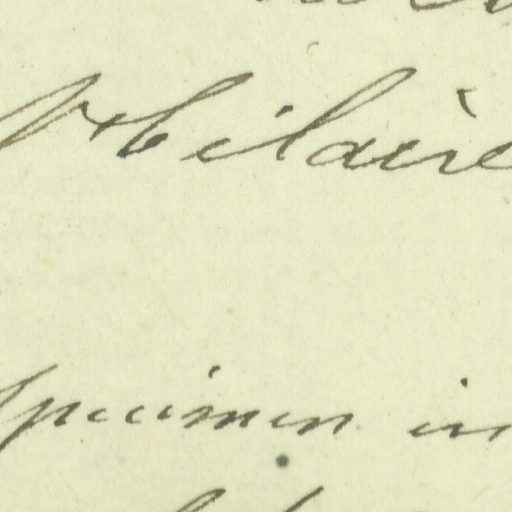 Hilaire
specimen in